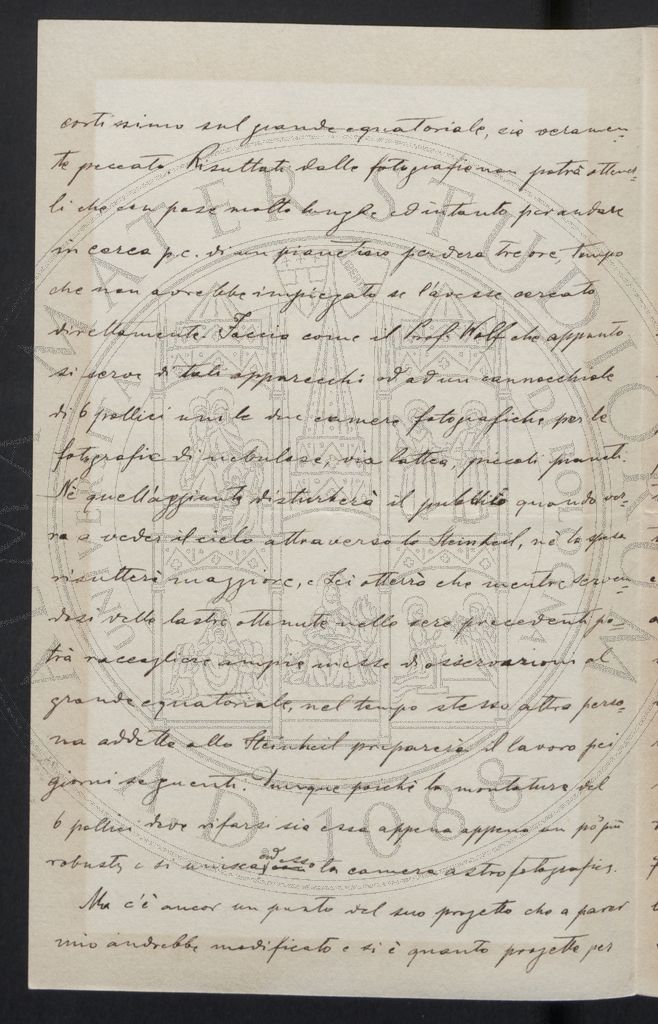 cortissimo sul grande equatoriale, sia veramen-
te peccato. Risultati dalle fotografie non potrà ottener-
li che con pose molto lunghe ed intanto per andare
in cerca p.c. di un pianetino perderà tre ore, tempo
che non avrebbe impiegato se l'avesse cercato
direttamente. Faccia come il Prof. Wolf che appunto
si serve di tali apparecchi ed ad un cannocchiale
di 6 pollici unì le due camere fotografiche per le
fotografie di nebulose, via lattea, piccoli pianeti.
Nè quell'aggiunta disturberà il pubblico quando ver-
rà a veder il cielo attraverso lo Steinheil, nè la spesa
risulterà maggiore, e Lei otterrà che mentre serven-
dosi delle lastre ottenute nelle sere precedenti po-
trà raccogliere ampia messe di osservazioni al
grande equatoriale, nel tempo stesso altra perso-
na addetta allo Steinheil preparerà il lavoro pei
giorni seguenti. Dunque poichè la montatura del
6 pollici deve rifarsi sia essa appena appena un pò più
robusta e si unisca ad esso la camera astrofotografica.
Ma c'è ancor un punto del suo progetto che a parer
mio andrebbe modificato e si è quanto progetta per
AD 1088